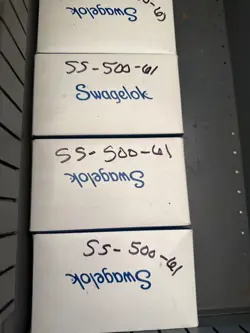 Swagelok
SS-500-61
Swagelok
SS-500-61
Swagelok
SS-500-61
Swagelok